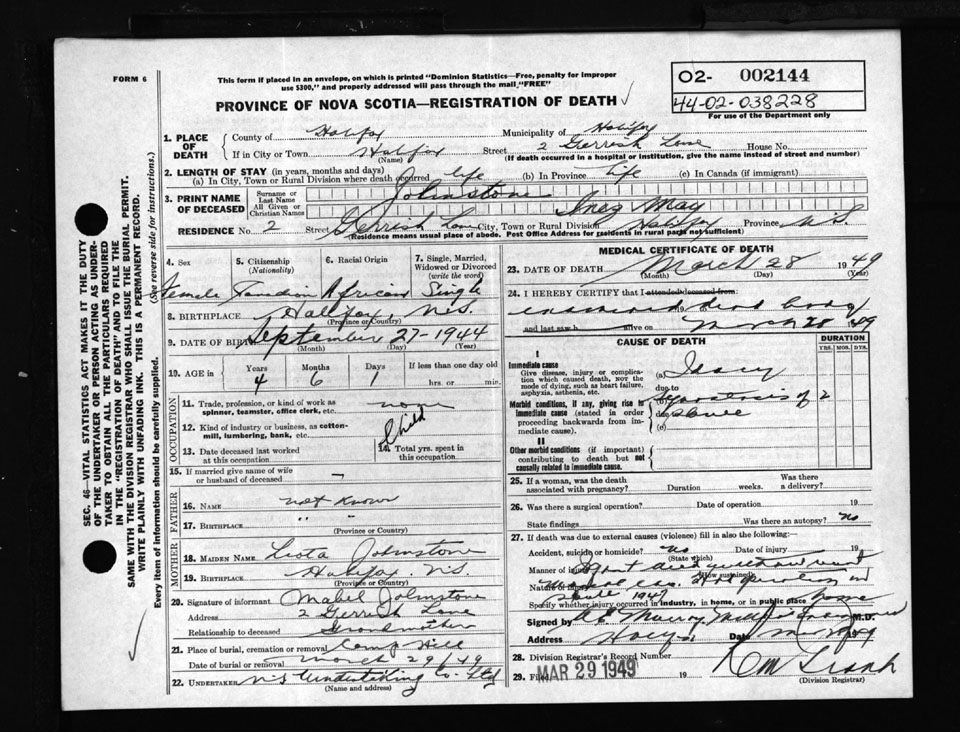 FORM 6
This form if placed in an envelope, on which is printed "Dominion Statistics—Free, penalty for improper
use $300," and properly addressed will pass through the mail, "FREE"
O2- 002144
44-02-038228
For use of the Department only
PROVINCE OF NOVA SCOTIA—REGISTRATION OF DEATH
1. PLACE OF DEATH
County of Halifax Municipality of Halifax
If in City or Town Halifax Street 2 Gerrish Lane House No.
(Name) (If death occurred in a hospital or institution, give the name instead of street and number)
2. LENGTH OF STAY (in years, months and days)
(a) In City, Town or Rural Division where death occurred life (b) In Province Life (c) In Canada (if immigrant)
3. PRINT NAME OF DECEASED
Surname or Last Name Johnstone
All Given or Christian Names Inez May
RESIDENCE No. 2 Street Gerrish Lane City, Town or Rural Division Halifax Province N.S.
(Residence means usual place of abode. Post Office Address for residents in rural parts not sufficient)
4. Sex
Female
5. Citizenship
(Nationality)
Canadian
6. Racial Origin
African
7. Single, Married,
Widowed or Divorced
(write the word)
Single
8. BIRTHPLACE Halifax, N.S.
(Province or Country)
9. DATE OF BIRTH September 27-1944
(Month) (Day) (Year)
10. AGE in
Years Months Days If less than one day old
4 6 1 hrs. or min.
OCCUPATION
11. Trade, profession, or kind of work as
spinner, teamster, office clerk, etc. none
12. Kind of industry or business, as cotton-
mill, lumbering, bank, etc. Child
13. Date deceased last worked
at this occupation
14. Total yrs. spent in
this occupation
15. If married give name of wife
or husband of deceased —
FATHER
16. Name not known
17. Birthplace " "
(Province or Country)
MOTHER
18. Maiden Name Johnstone
19. Birthplace Halifax N.S.
(Province or Country)
20. Signature of informant Mabel Johnstone
Address 2 Gerrish Lane
Relationship to deceased Grandmother
21. Place of burial, cremation or removal Camp Hill
Date of burial or removal March 29/49
22. Undertaker N.S. Undertaking Co. Ltd
(Name and address)
MEDICAL CERTIFICATE OF DEATH
23. DATE OF DEATH March 28 1949
(Month) (Day) (Year)
24. I HEREBY CERTIFY that I attended deceased from:
examined dead body
and last saw h alive on March 28 1949
CAUSE OF DEATH
DURATION
YRS. MOS. DYS.
I
Immediate cause
Give disease, injury or complica-
tion which caused death, nor the
mode of dying, such as heart failure,
asphyxia, asthenia, etc.
(a)
due to
Morbid conditions, if any, giving rise to
immediate cause (stated in order
proceeding backwards from im-
mediate cause).
of 2
due to
(c)
II
Other morbid conditions (if important)
contributing to death but not
causally related to immediate cause.
25. If a woman, was the death
associated with pregnancy? Duration weeks. Was there
a delivery?
26. Was there a surgical operation? Date of operation 19
State findings Was there an autopsy? no
27. If death was due to external causes (violence) fill in also the following:
Accident, suicide or homicide? No Date of injury 19
(State which)
Manner of injury
(How sustained)
Nature of injury
1947
Specify whether injury occurred in industry, in home, or in public place home
Signed by M.D.
Address Date
28. Division Registrar's Record Number
29. Filed MAR 29 1949 19
(Division Registrar)
SEC. 46—VITAL STATISTICS ACT MAKES IT THE DUTY
OF THE UNDERTAKER OR PERSON ACTING AS UNDER-
TAKER TO OBTAIN ALL THE PARTICULARS REQUIRED
IN THE "REGISTRATION OF DEATH" AND TO FILE THE
SAME WITH THE DIVISION REGISTRAR WHO SHALL ISSUE THE BURIAL PERMIT.
WRITE PLAINLY WITH UNFADING INK. THIS IS A PERMANENT RECORD.
Every item of information should be carefully supplied.
(See reverse side for instructions.)